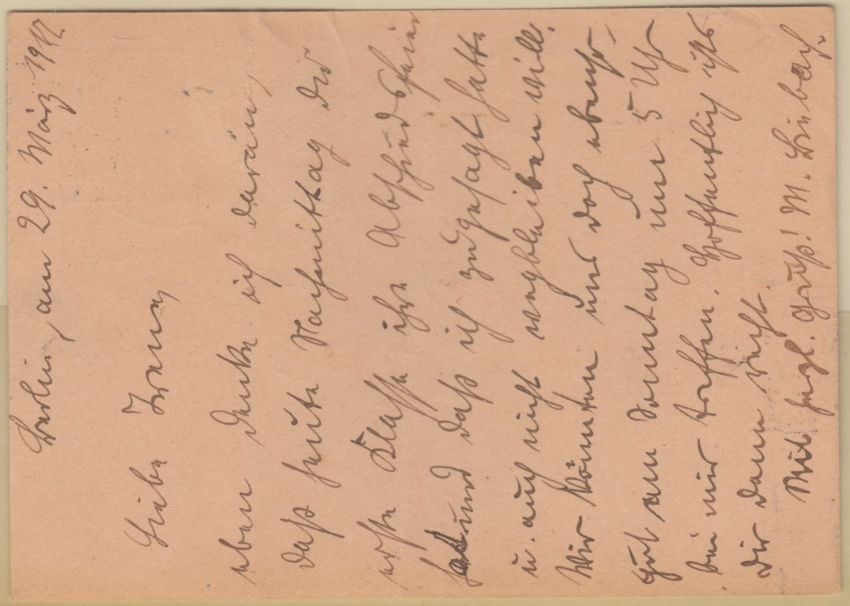 Berlin, am 29. März 1912
Liebe Irene,
eben denke ich daran,
daß heute Nachmittag die
erste Klasse ihre Abschiedsfeier
hat und daß ich zugesagt hatte
u. auch nicht wegbleiben will.
Wir könnten uns doch eben so
gut am Sonntag um 5 Uhr
bei mir treffen. Hoffentlich ists
Dir dann recht.
Mit herzl. Gruß! M.